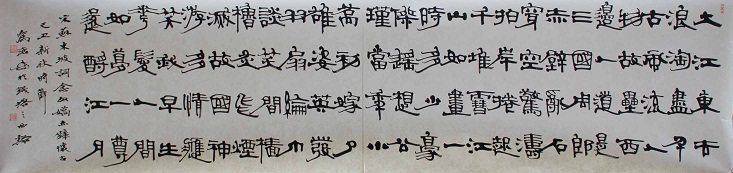 大江東去
浪淘盡千
古風流人
物故壘西
邊人道是
三國周郎
赤壁亂石
穿空驚濤
拍岸捲起
千堆雪江
山如畫一
時多少豪
傑遙想公
瑾當年小
喬初嫁了
雄姿英發
羽扇綸巾
談笑間檣
櫓灰飛煙
滅故國神
游多情應
笑我早生
華髮人間
如夢一尊
還酹江月
宋蘇東坡詞念奴嬌赤壁懷古
丑新秋時節